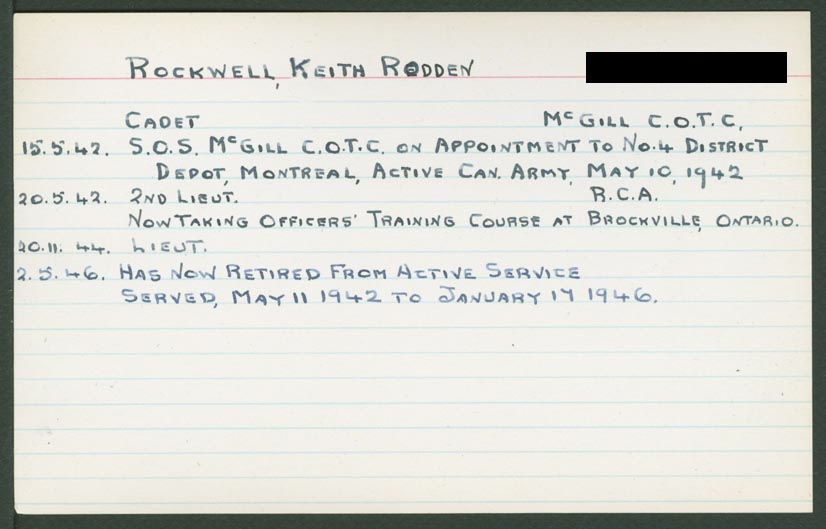 ROCKWELL, KEITH RODDEN
CADET McGILL C.O.T.C.
15.5.42. S.O.S. McGILL C.O.T.C. ON APPOINTMENT TO No.4 DISTRICT
DEPOT, MONTREAL, ACTIVE CAN. ARMY, MAY 10, 1942
20.5.42. 2ND LIEUT. R.C.A.
NOW TAKING OFFICERS' TRAINING COURSE AT BROCKVILLE, ONTARIO.
20.11.44. LIEUT.
2.5.46. HAS NOW RETIRED FROM ACTIVE SERVICE
SERVED, MAY 11 1942 TO JANUARY 17 1946.